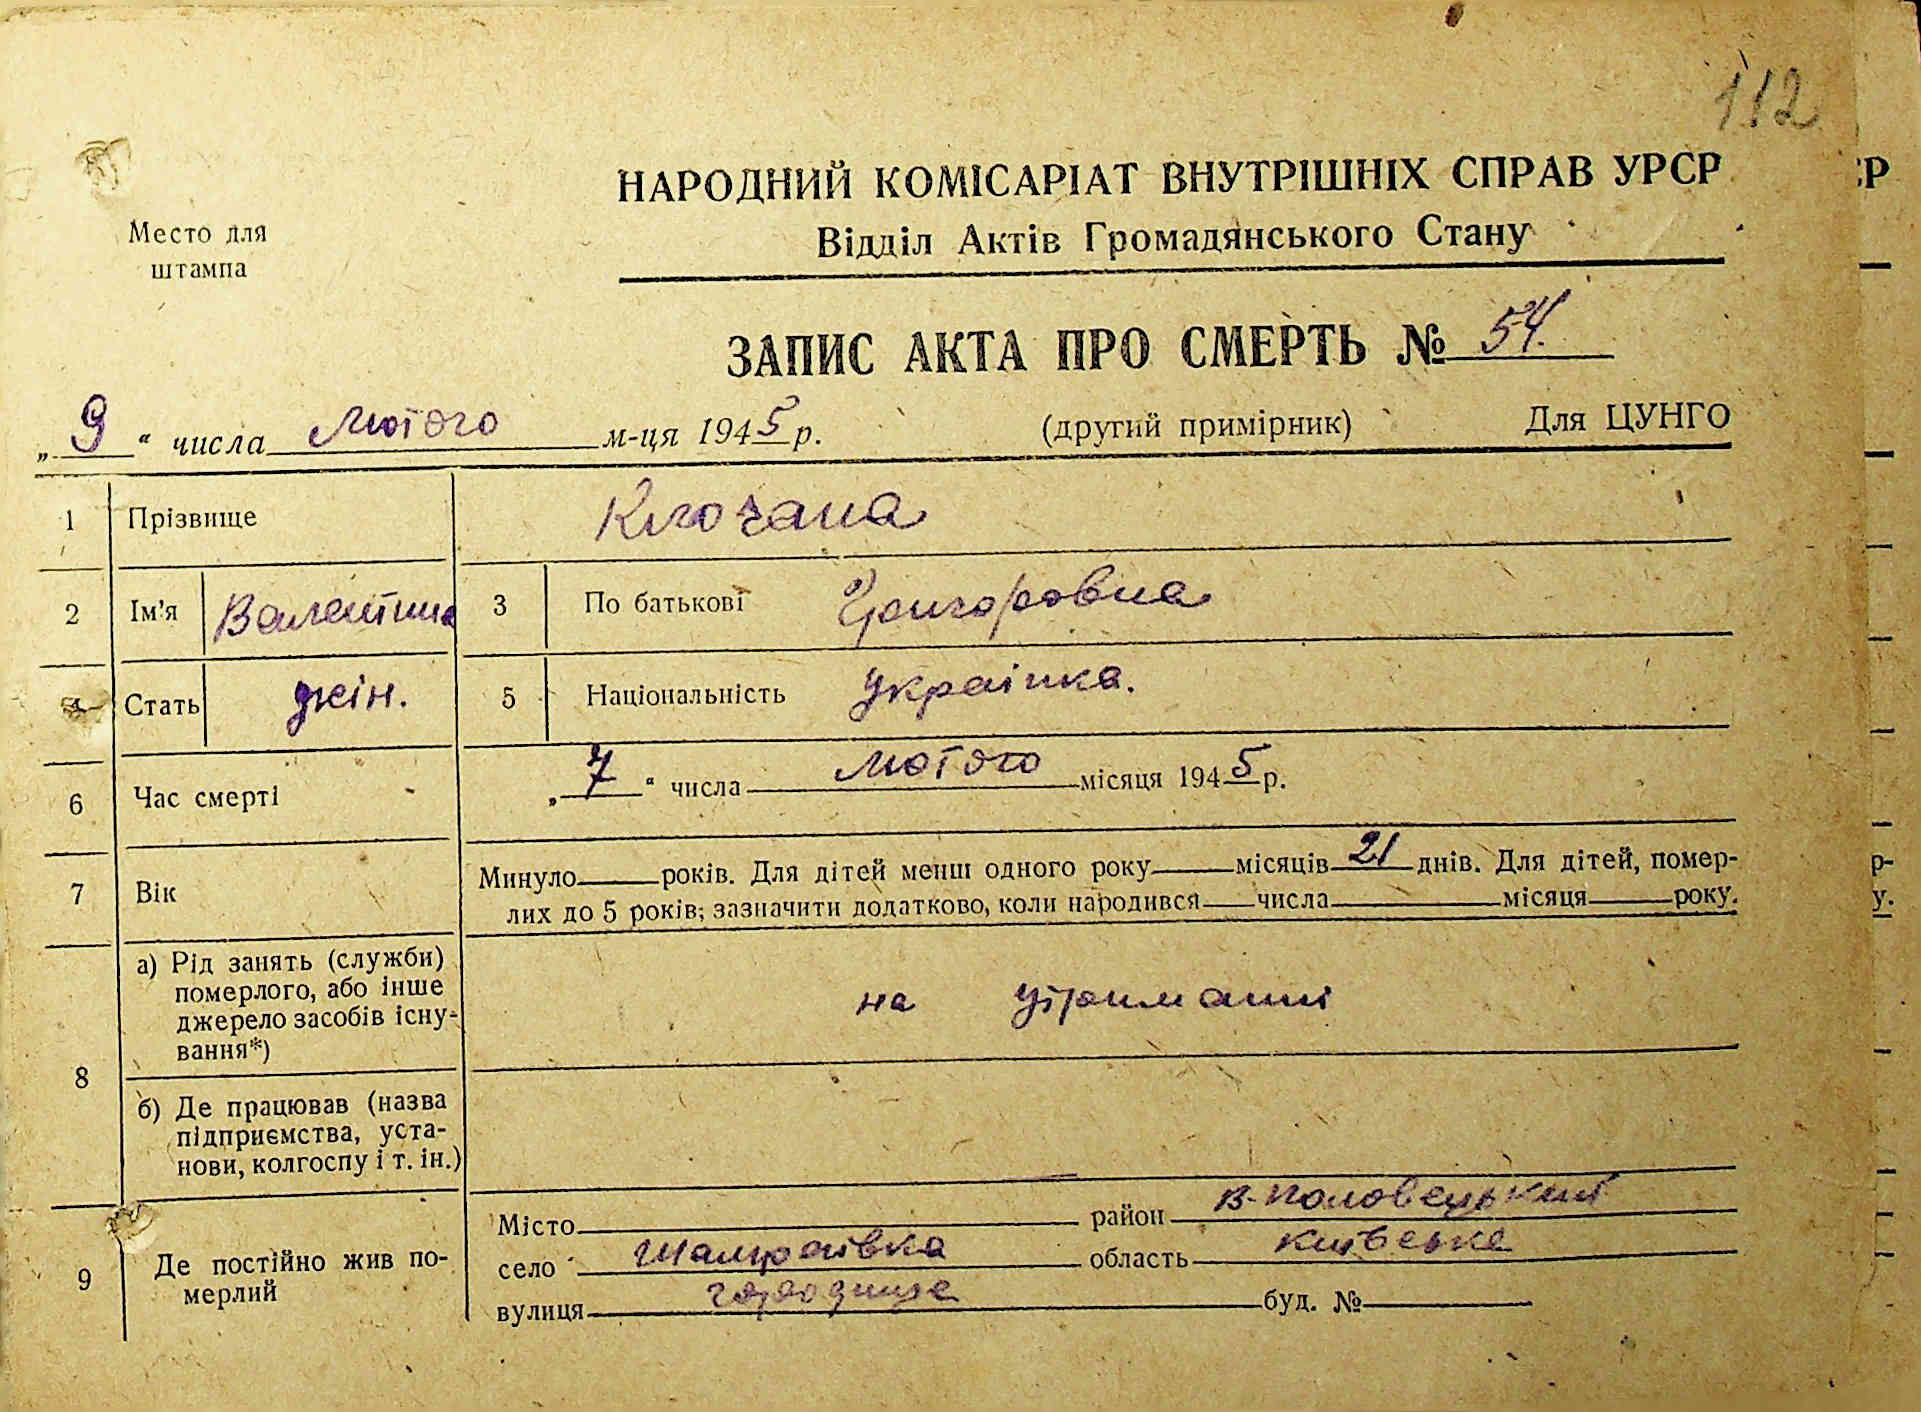 112
НАРОДНИЙ КОМІСАРІАТ ВНУТРІШНІХ СПРАВ УРСР
Відділ Актів Громадянського Стану
Место для
штампа
ЗАПИС АКТА ПРО СМЕРТЬ № 54.
„9“ числа Лютого м-ця 1945 р. (другий примірник) Для ЦУНГО
1 Прізвище Клочана
2 Ім'я Валентина 3 По батькові Григоровна
4 Стать жін. 5 Національність Українка.
6 Час смерті „7“ числа Лютого місяця 1945 р.
7 Вік Минуло років. Для дітей менш одного року місяців 21 днів. Для дітей, помер-
лих до 5 років; зазначити додатково, коли народився числа місяця року.
8 а) Рід занять (служби)
померлого, або інше
джерело засобів існу-
вання*) на утриманні
б) Де працював (назва
підприємства, уста-
нови, колгоспу і т. ін.)
9 Де постійно жив по-
мерлий
Місто район В-Половецький
село Шамраївка область Київське
вулиця городище буд. №
СР
р-
у.